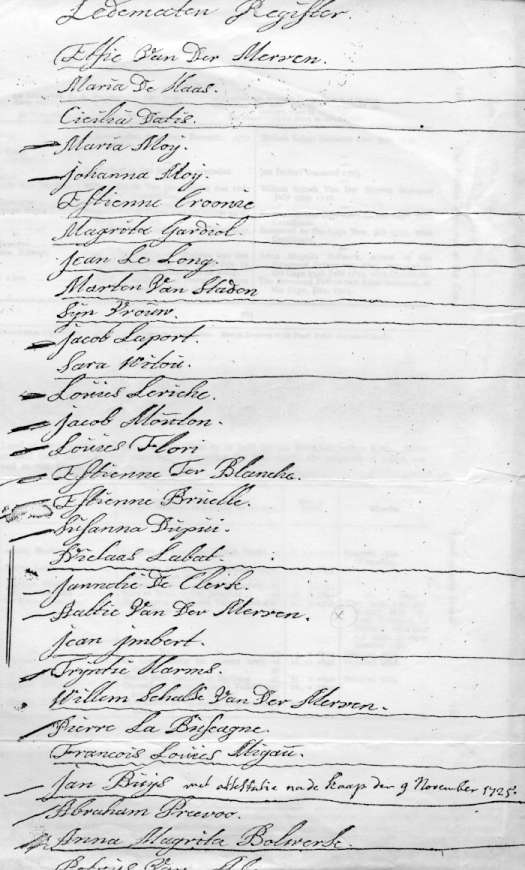 Ledemeeten Register.
Effie Van Der Merven.
Maria De Haas.
Cicilia Datis.
Maria Moy.
Johanna Moy.
Estienne Croonie
Magrita Gardiol.
Jean Le Long.
Marten Van Staden
Syn Vroüw.
Jacob Laport.
Sara Witou.
Loüies Leriche.
Jacob Moüton.
Loüies Flori
Estienne Ter Blanche.
Estienne Bruelle.
Susanna Dupüi.
Niclaas Labat.
Jannetie De Clerk.
Aaltie Van Der Merven.
Jean Jmbert.
Tryntie Harms.
Willem Schalk Van Der Merven.
Pierre La Buscagne.
Francois Loüies Migaü.
Jan Buys met attestatie na de kaap den 9 November 1725.
Abraham Preevoo.
Anna Magrita Bolwerk.
Van